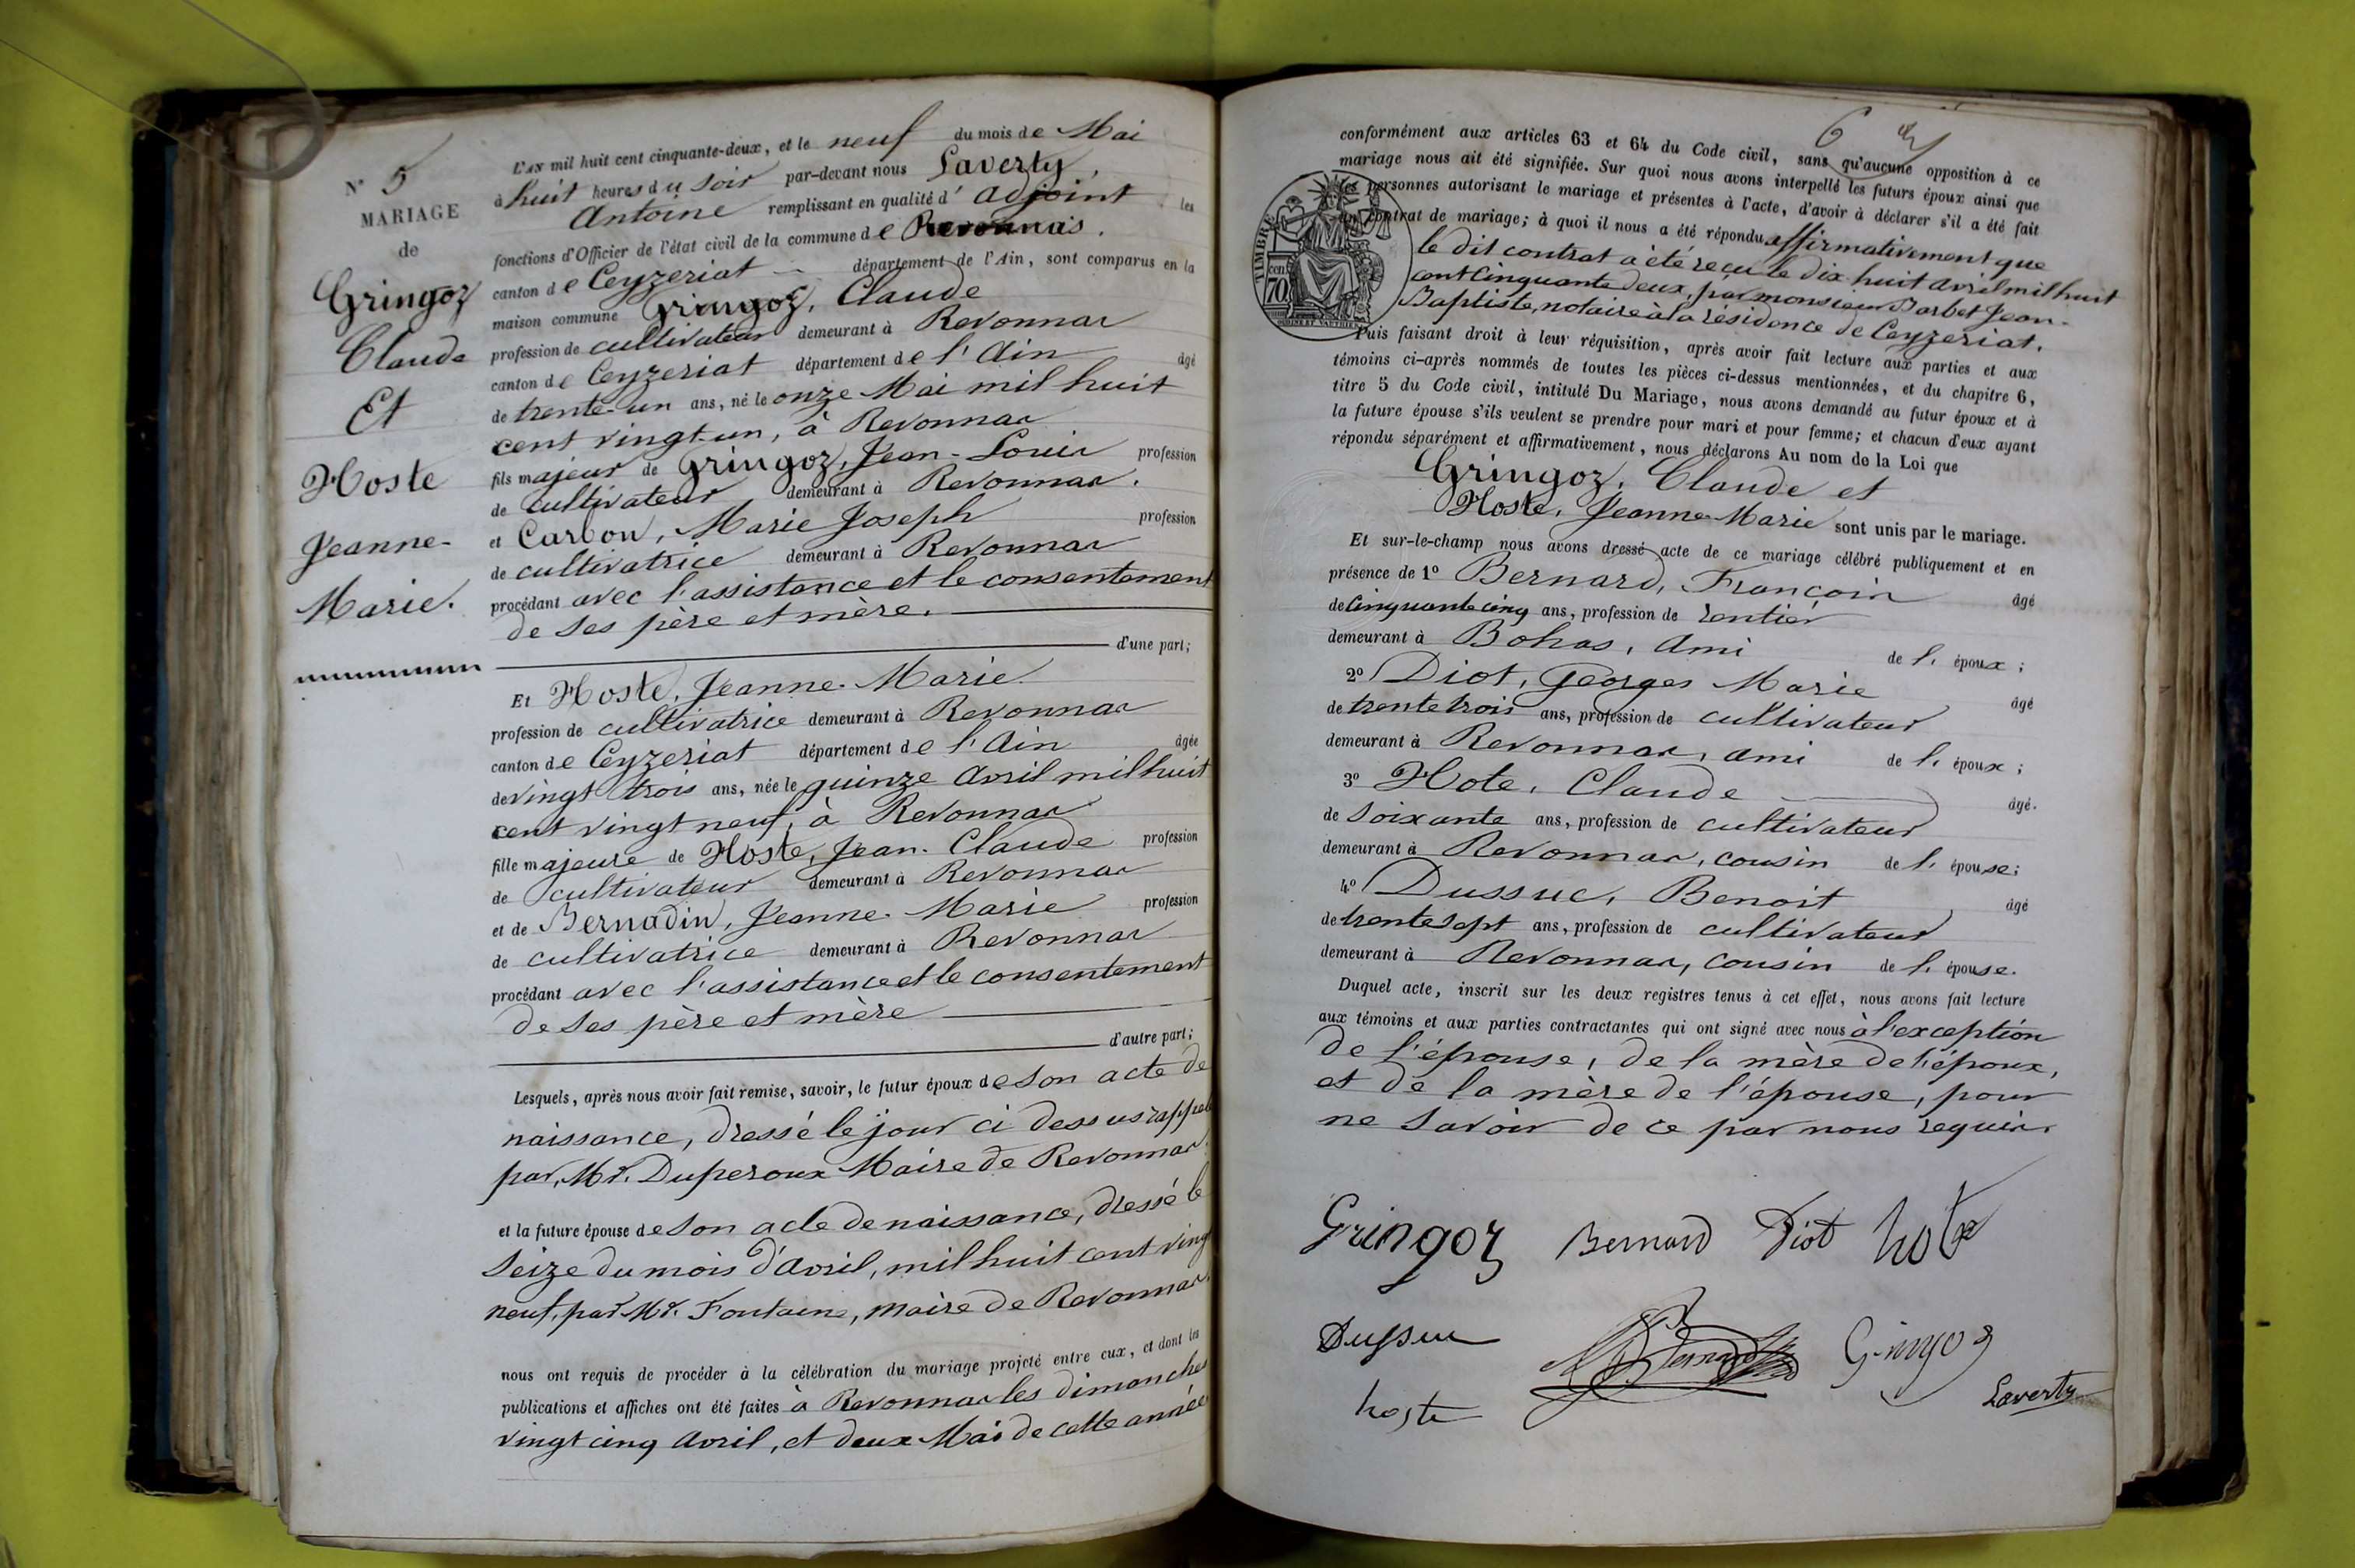 N° 5
MARIAGE
de
Gringoz
Claude
Et
Hoste
Jeanne-
Marie.
L'AN mil huit cent cinquante-deux, et le neuf du mois de Mai
à huit heures du soir par-devant nous Laverty,
Antoine remplissant en qualité d'adjoint les
fonctions d'Officier de l'état civil de la commune de Revonnas.
canton de Ceyzeriat département de l'Ain, sont comparus en la
maison commune Gringoz, Claude
profession de cultivateur demeurant à Revonnas
canton de Ceyzeriat département de l'Ain âgé
de trente-un ans, né le onze Mai mil huit
cent vingt-un, à Revonnas
fils majeur de Gringoz, Jean-Louis profession
de cultivateur demeurant à Revonnas.
et Carbon, Marie Joseph profession
de cultivatrice demeurant à Revonnas
procédant avec l'assistance et le consentement
de ses père et mère.
d'une part;
Et Hoste, Jeanne-Marie
profession de cultivatrice demeurant à Revonnas
canton de Ceyzeriat département de l'Ain âgée
de vingt trois ans, née le quinze avril mil huit
cent vingt neuf, à Revonnas
fille majeure de Hoste, Jean-Claude profession
de cultivateur demeurant à Revonnas
et de Bernadin, Jeanne-Marie profession
de cultivatrice demeurant à Revonnas
procédant avec l'assistance et le consentement
de ses père et mère
d'autre part;
Lesquels, après nous avoir fait remise, savoir, le futur époux de son acte de
naissance, dressé le jour ci dessus rappelé
par, Mr. Duperoux Maire de Revonnas.
et la future épouse de son acte de naissance, dressé le
seize du mois d'avril, mil huit cent vingt
neuf, par Mr. Fontaine, maire de Revonnas.
nous ont requis de procéder à la célébration du mariage projeté entre eux, et dont les
publications et affiches ont été faites à Revonnas les dimanches
vingt cinq avril, et deux Mai de cette année
6
conformément aux articles 63 et 64 du Code civil, sans qu'aucune opposition à ce
mariage nous ait été signifiée. Sur quoi nous avons interpellé les futurs époux ainsi que
les personnes autorisant le mariage et présentes à l'acte, d'avoir à déclarer s'il a été fait
un contrat de mariage; à quoi il nous a été répondu affirmativement que
le dit contrat a été reçu le dix huit avril mil huit
cent cinquante deux, par monsieur Barbet Jean-
Baptiste, notaire à la résidence de Ceyzeriat.
TIMBRE
cen
70
Puis faisant droit à leur réquisition, après avoir fait lecture aux parties et aux
témoins ci-après nommés de toutes les pièces ci-dessus mentionnées, et du chapitre 6,
titre 5 du Code civil, intitulé Du Mariage, nous avons demandé au futur époux et à
la future épouse s'ils veulent se prendre pour mari et pour femme; et chacun d'eux ayant
répondu séparément et affirmativement, nous déclarons Au nom de la Loi que
Gringoz, Claude et
Hoste, Jeanne-Marie sont unis par le mariage.
Et sur-le-champ nous avons dressé acte de ce mariage célébré publiquement et en
présence de 1° Bernard, François âgé
de cinquante cinq ans, profession de rentier
demeurant à Bohas, ami de l'époux;
2° Diot, Georges Marie âgé
de trente trois ans, profession de cultivateur
demeurant à Revonnas, ami de l'époux;
3° Hote, Claude âgé.
de soixante ans, profession de cultivateur
demeurant à Revonnas, cousin de l'épouse;
4° Dussuc, Benoit âgé
de trente sept ans, profession de cultivateur
demeurant à Revonnas, cousin de l'épouse.
Duquel acte, inscrit sur les deux registres tenus à cet effet, nous avons fait lecture
aux témoins et aux parties contractantes qui ont signé avec nous à l'exception
de l'épouse, de la mère de l'époux,
et de la mère de l'épouse, pour
ne savoir de ce par nous requis.
Gringoz Bernard Diot hote
Dussuc Bernard Gringoz
hoste Laverty